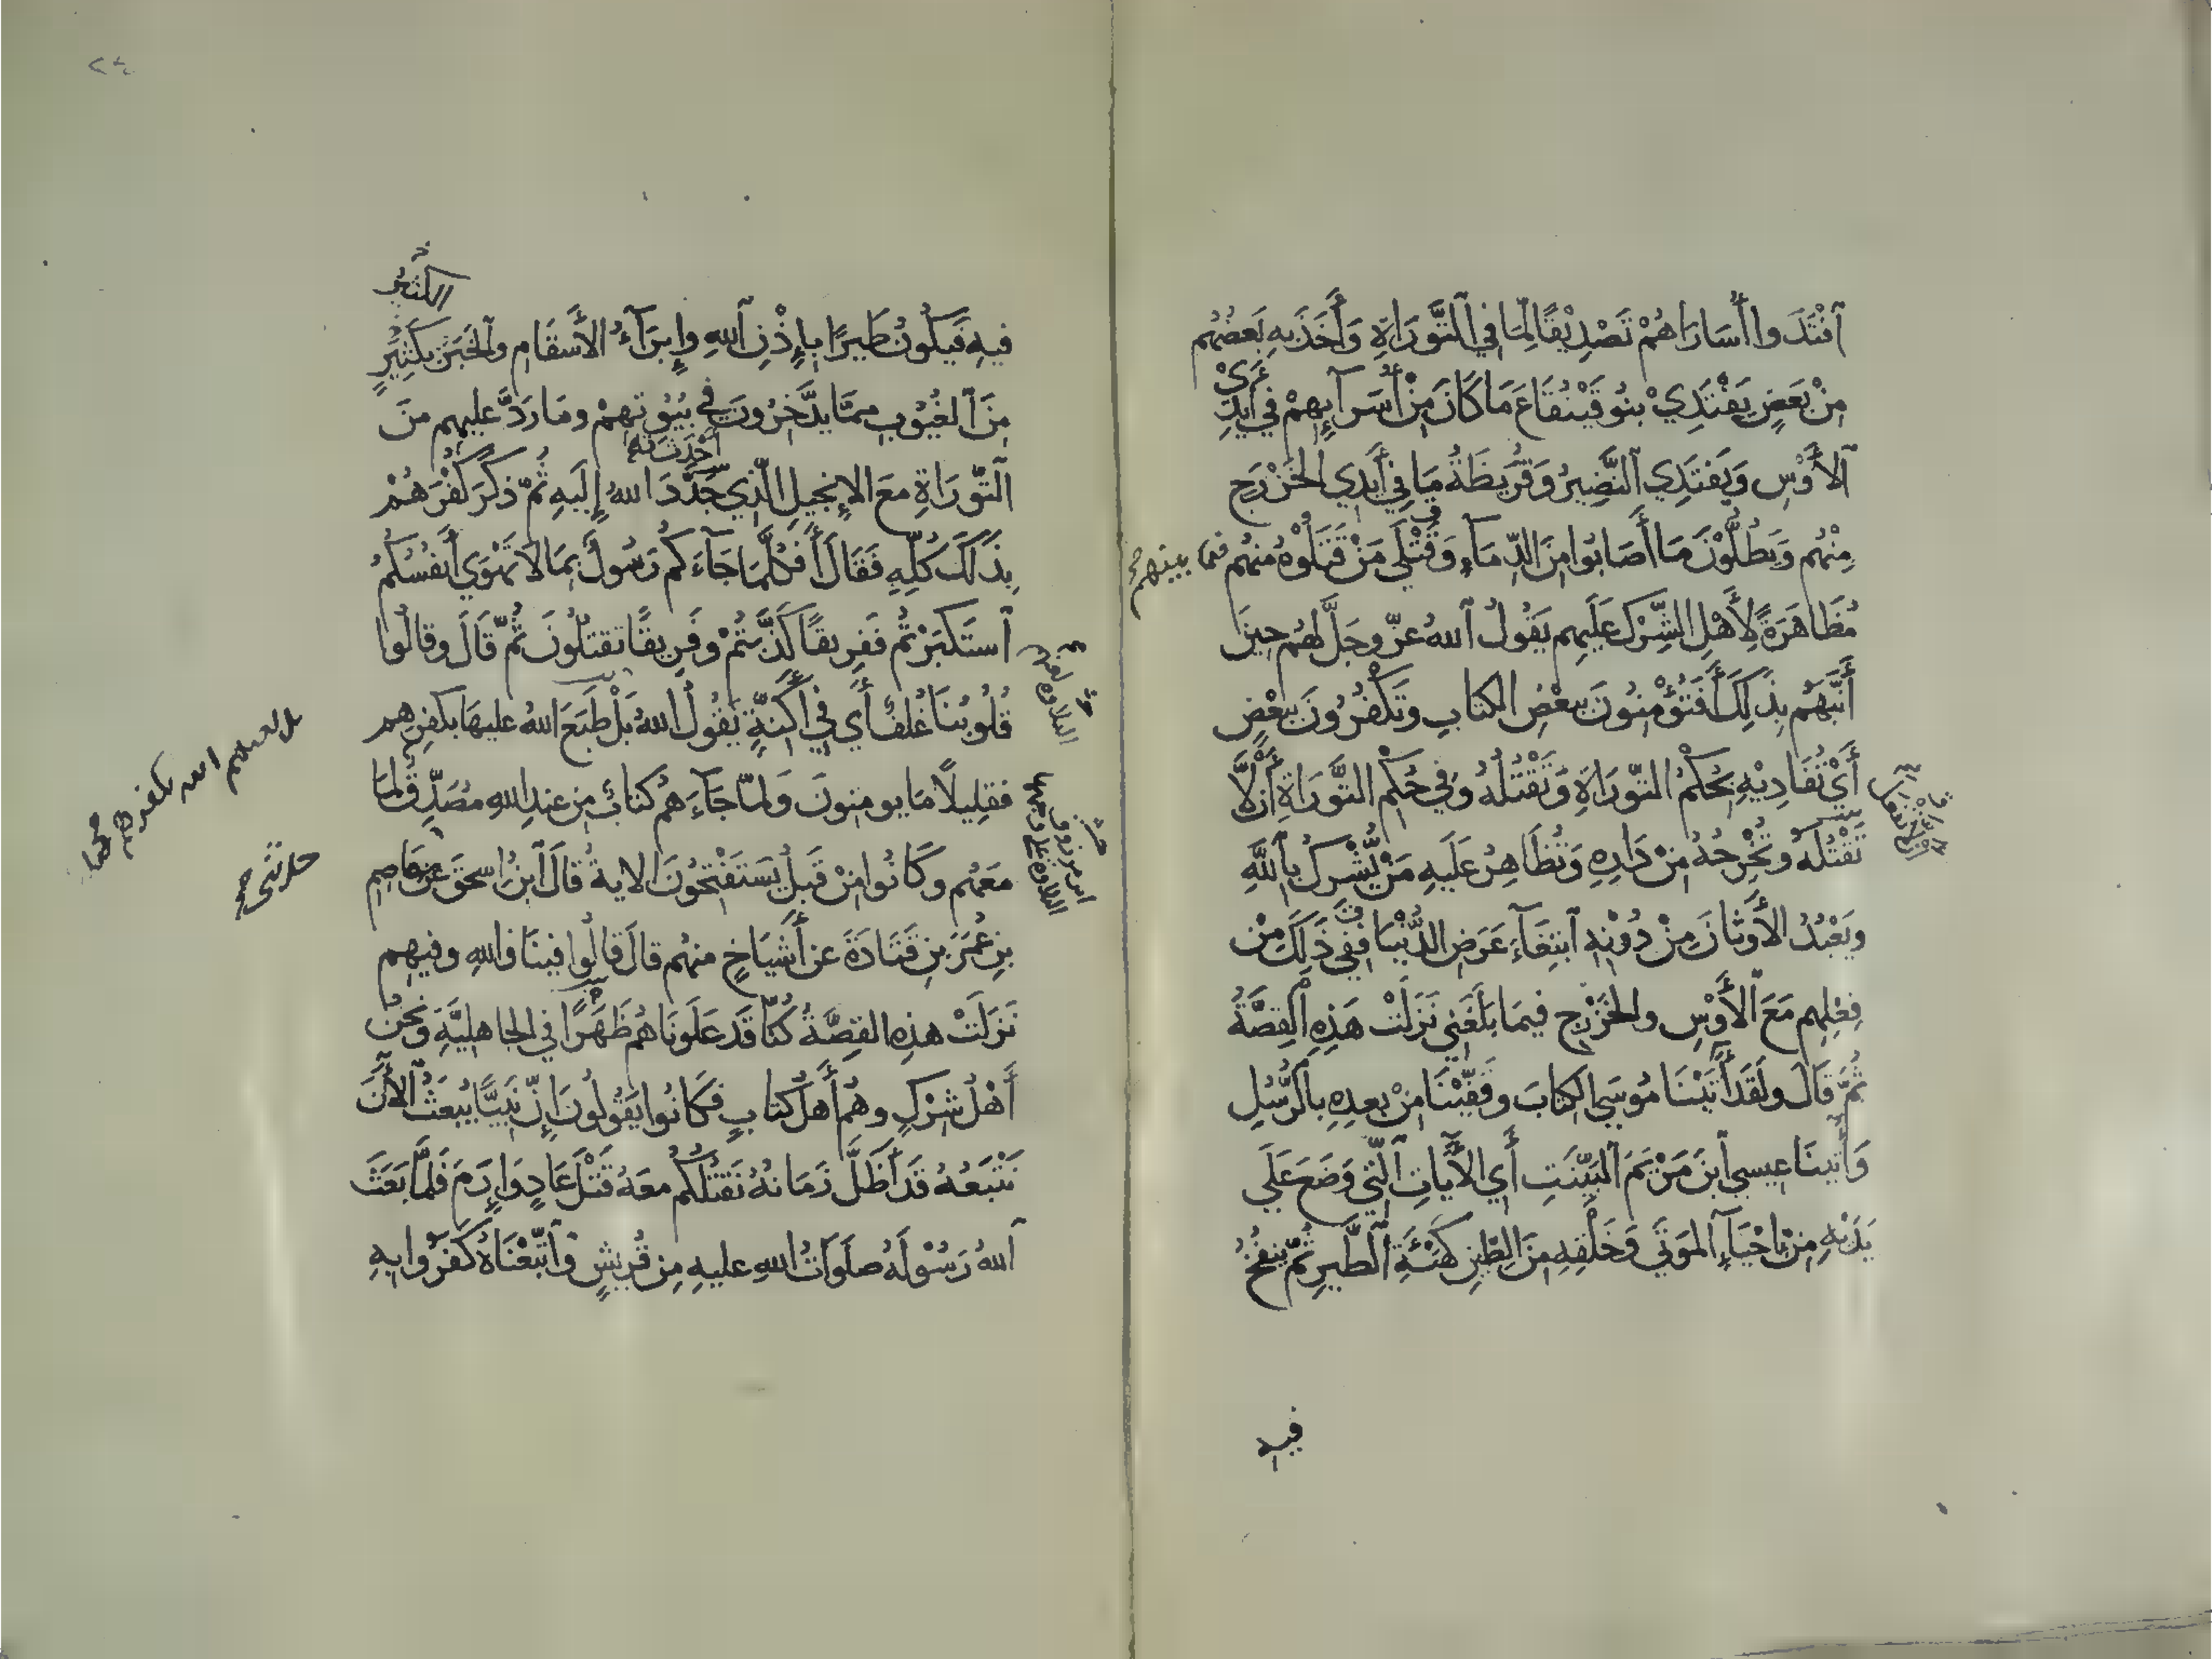 ٱفْتَدَوا أُسَارَاهُمْ تَصْدِيْقًا لِمَا فِي ٱلتَّوْرَاةِ وَأَخَذَ بِهِ بَعضُهُم
مِنْ بَعضٍ يَفْتَدِيْ بنُو قَيْنُقَاعَ مَا كَانَ مِنْ أُسَرآئِهِمْ في أَيْدِي
ٱلأَوْسِ وَيَفتَدِي ٱلنَّضِيرُ وَقُرَيظَةُ مَا فِي أَيدِي الخَزْرَجِ
مِنْهُم وَيَطُلُّوْنَ مَا أَصَابُوا مِنَ الدِّمَاءِ وَقَتْلَى مَنْ قَتَلُوْهُ مِنهُم فيما بينهم
مُظَاهَرَةً لِأَهْلِ الشِّرْكِ عَلَيهِم يَقُولُ ٱللهُ عزّ وجَلَّ لهُم حِينَ
أَنَّبَهُم بِذَلِكَ أَفَتُؤْمِنُونَ بِبعْضِ الكتابِ وتَكْفُرُونَ بِبَعْضٍ
أَيْ تُفَادِيْهِ بِحُكْمِ التّورَاةِ وَتَقْتُلُهُ وَفي حُكمِ التَّورَاةِ أَنْ لَّا
تَقْتُلَهُ وتُخْرِجُهُ مِنْ دَارِهِ وَتُظَاهِرُ عَلَيهِ مَنْ يُّشْرِكُ بِاللَّهِ
وَيَعْبُدُ الأَوثَانَ مِنْ دُوْنِهِ ٱبتِغَآءَ عَرَضِ الدُّنْيَا فَفِي ذَلِكَ مِنْ
فِعْلِهِم مَعَ ٱلأَوْسِ والخَزْرَجِ فيمَا بَلَغَنِي نَزَلَتْ هَذِهِ ٱلقِصَّةُ
ثُمَّ قَالَ ولَقَدْ أٰتَيْنَا مُوسَى الكِتَابَ وقَفَّيْنَا مِنْ بعدِهِ بِالرُّسُلِ
وَأٰتَينَا عِيسى ٱبنَ مَرْيَمَ ٱلبَيِّنَتِ أَي الأَيَاتِ ٱلّتِي وَضَعَ عَلَى
يَدَيْهِ مِنْ إحْيَآءِ المَوتَى وَخَلْقِهِ مِنَ الطِّينِ كهَيْئَةِ ٱلطَّيرِ ثُمّ يَنفُخُ
فيه
٢٤
الكثير
فيهِ فَيَكُونُ طَيرًا بِإِذْنِ ٱللهِ وإِبرَآءُ الأَسقَامِ والخَبَرُ بكثِيرٍ
مِنَ ٱلغُيُوبِ ممَّا يَدَّخِرُونَ فِي بُيُوتِهِمْ ومَا رَدَّ عليهِم مِنَ
التّورَاةِ معَ الإِنجيلِ الّذِي جَدَّدَ اللهُ إِلَيهِ ثُمّ ذكَرَ كُفْرَهُمْ
بِذَلِكَ كُلِّهِ فَقَالَ أَفَكُلَّمَا جَآءَكُم رَسُولٌ بِمَا لا تَهْوَى أَنفُسُكُمُ
ٱستَكبَرْتُم فَفَرِيقًا كَذَّبتُمْ وفَرِيقًا تَقتُلُونَ ثُمّ قَالَ وقالُوا
قُلُوبُنَا غُلفٌ أَي في أَكِنَّةٍ يَقُولُ اللهُ بَلْ طَبَعَ اللهُ عليهَا بكفرِهم
فقلِيلًا مَا يومِنونَ ولمّا جَآءَهُم كتابٌ من عندِ اللهِ مُصَدِّقٌ لمَا
مَعَهُم وكَانُوا مِنْ قَبلُ يَستَفْتِحُونَ الايةُ قالَ ٱبنُ اسحقَ عن عَاصِمِ
بنِ عُمَرَ بنِ قَتَادَةَ عن أَشيَاخٍ منهُم قالَ قالُوا فينَا واللهِ وفيهِم
نَزلَتْ هذِهِ القِصَّةُ كُنّا قَد عَلَونَاهُم ظَهْرًا في الجاهليَّةِ ونَحْنُ
أَهْلُ شِرْكٍ وهُم أَهلُ كتابٍ فكَانُوا يقُولُونَ إِنّ نَبِيًّا يُبعَثُ الأٰنَ
نَتَّبعُهُ قَد أَظَلَّ زَمَانُهُ نَقتُلُكُم معَهُ قَتْلَ عَادٍ وَإِرَمَ فَلمَّا بَعَثَ
ٱللهُ رَسُوْلَهُ صلَوَاتُ اللهِ عليهِ مِن قُريشٍ وٱتّبَعْنَاهُ كَفَرُوا بِهِ
بل لعنهم الله بكفرهم
حدثني